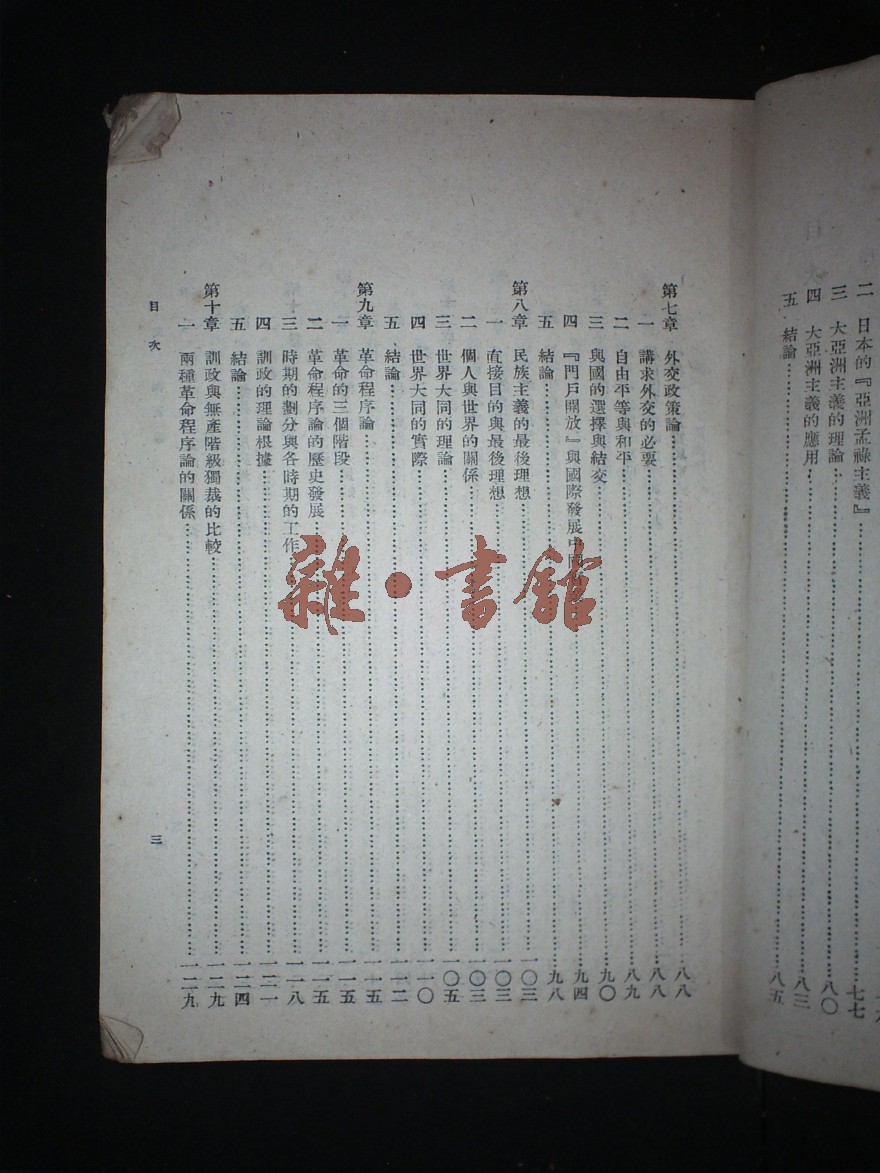 二 日本的『亞洲孟祿主義』……七七
三 大亞洲主義的理論……八〇
四 大亞洲主義的應用……八三
五 結論……八五
第七章 外交政策論……八八
一 講求外交的必要……八八
二 自由平等與和平……八九
三 與國的選擇與結交……九〇
四 『門戶開放』與國際發展中國……九四
五 結論……九八
第八章 民族主義的最後理想……一〇三
一 直接目的與最後理想……一〇三
二 個人與世界的關係……一〇三
三 世界大同的理論……一〇五
四 世界大同的實際……一一〇
五 結論……一一二
第九章 革命程序論……一一五
一 革命的三個階段……一一五
二 革命程序論的歷史發展……一一五
三 時期的劃分與各時期的工作……一一八
四 訓政的理論根據……一二一
五 結論……一二四
第十章 訓政與無產階級獨裁的比較……一二九
一 兩種革命程序論的關係……一二九
目次 三
雜·書館